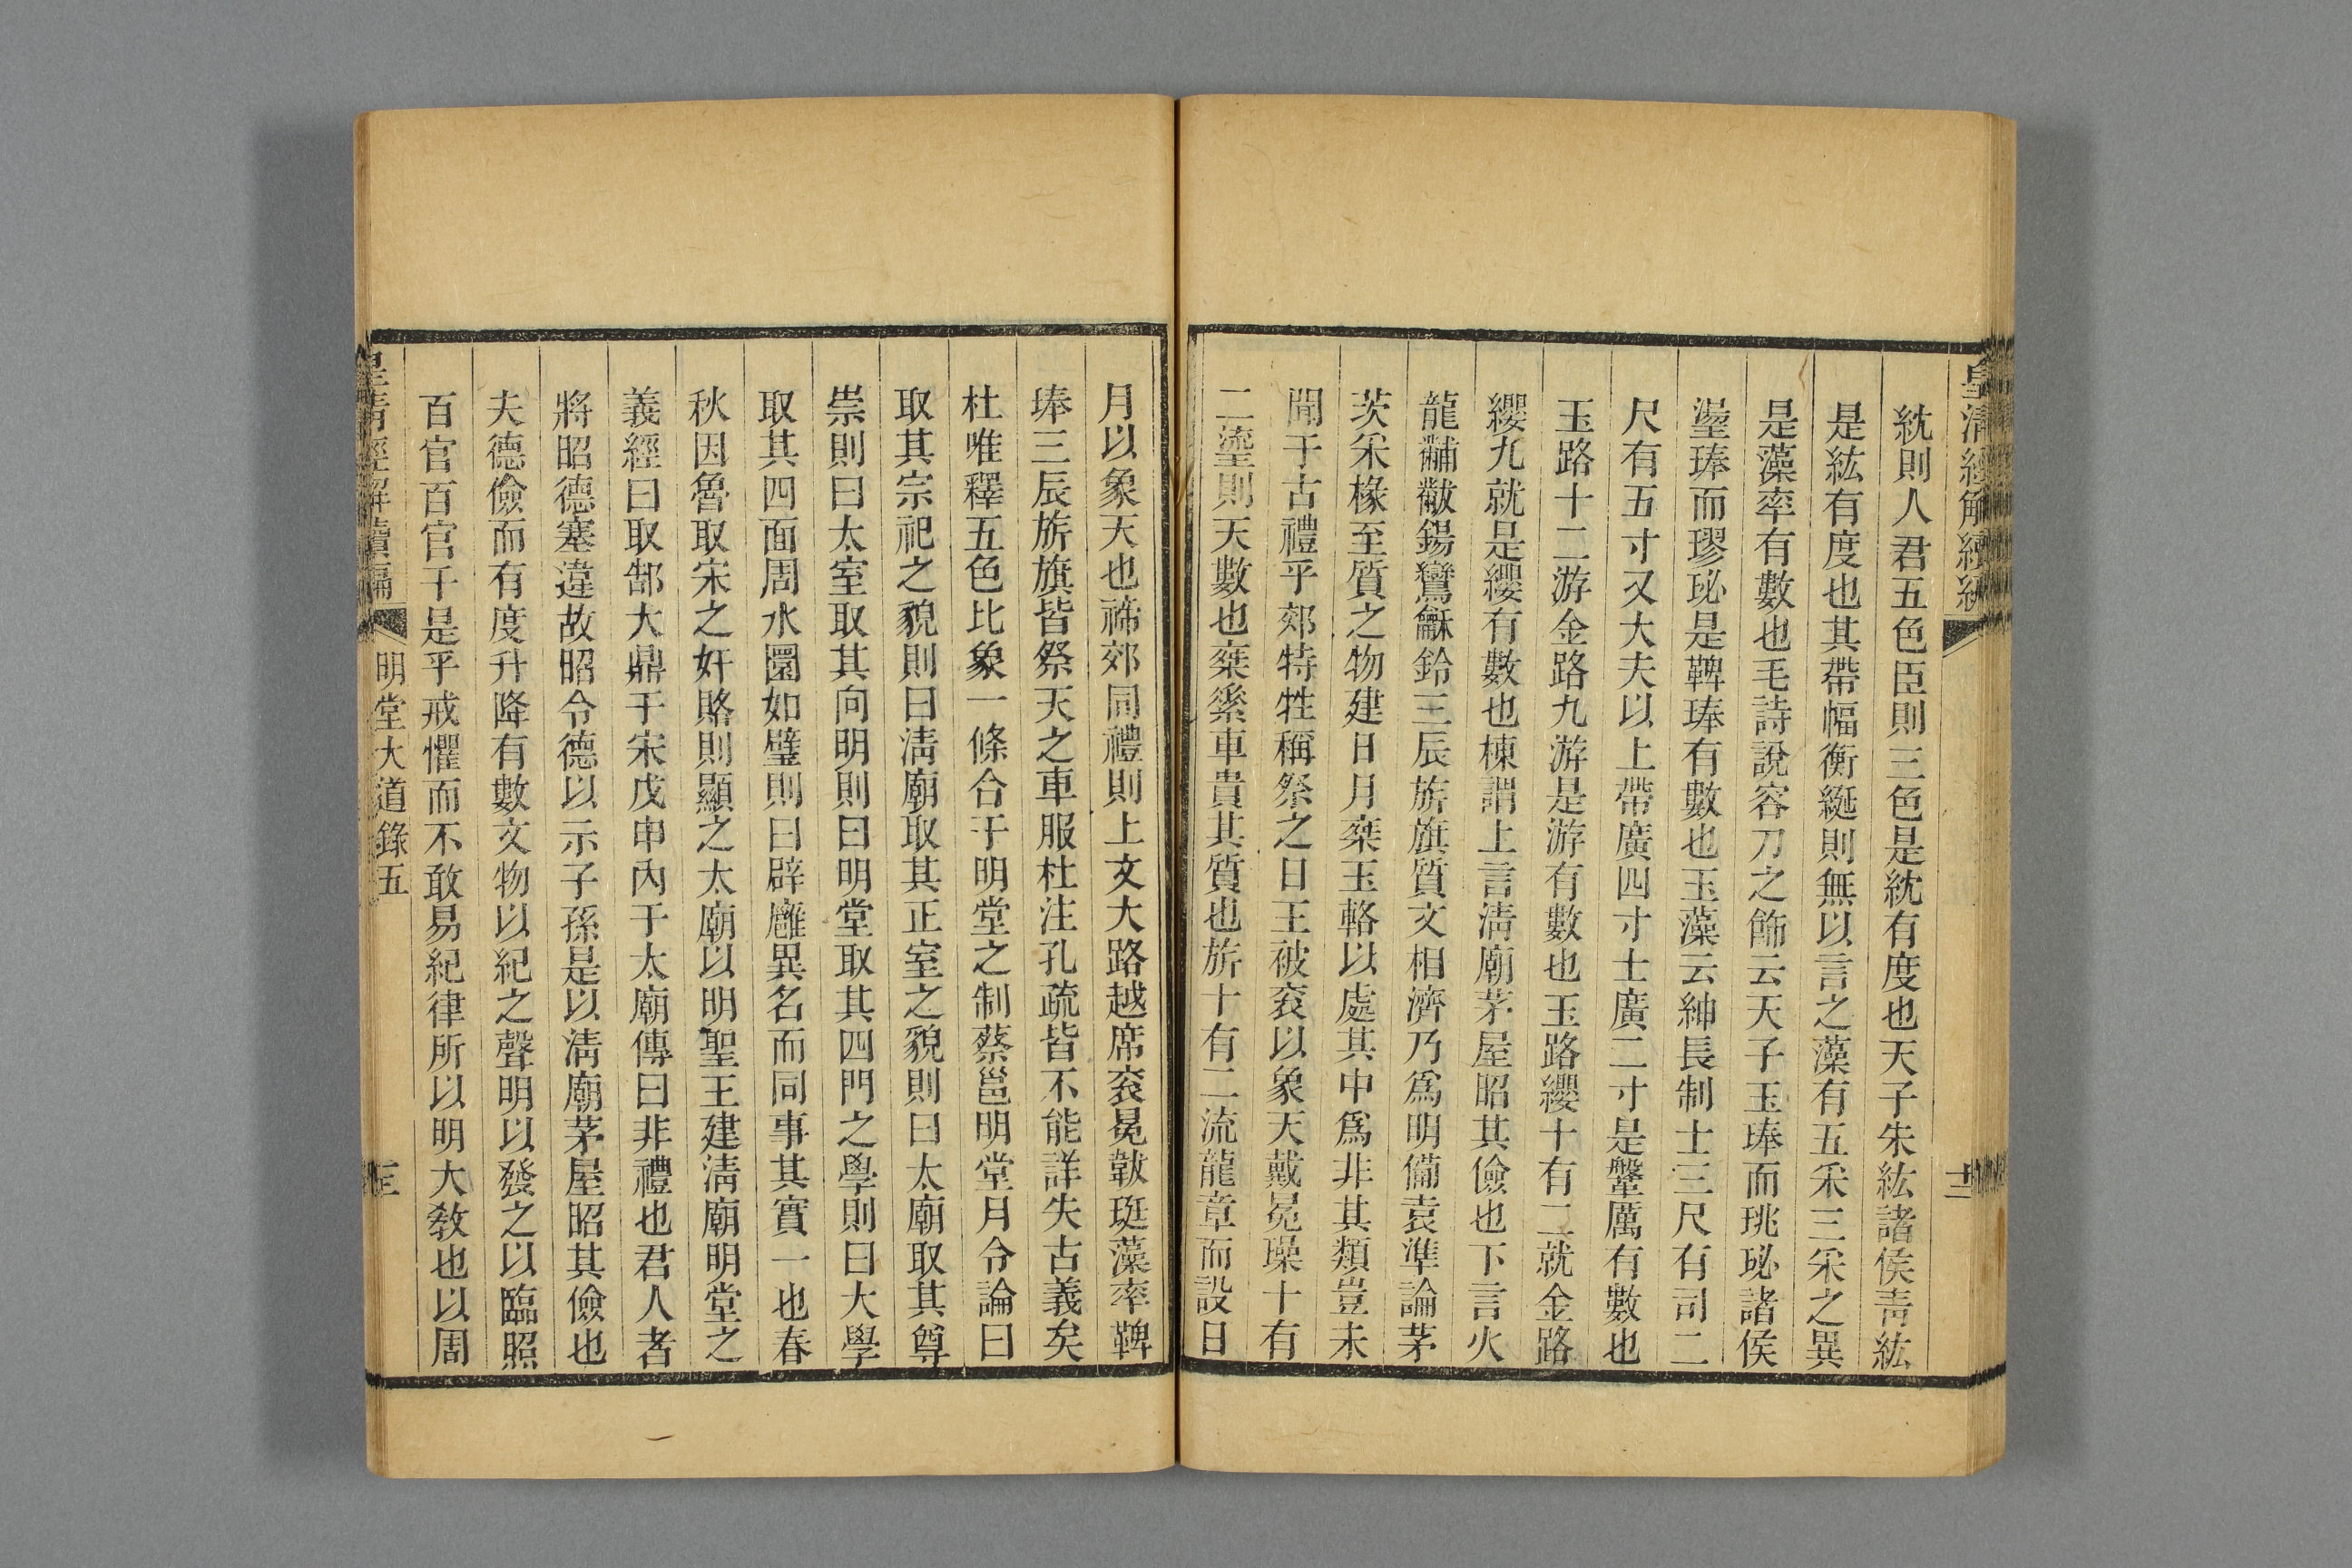 皇清經解續編
十二
紞則人君五色臣則三色是紞有度也天子朱紘諸侯靑紘
是紘有度也其帶幅衡綖則無以言之藻有五采三采之異
是藻率有數也毛詩說容刀之飾云天子玉琫而珧珌諸侯
璗琫而璆珌是鞞琫有數也玉藻云紳長制士三尺有司二
尺有五寸又大夫以上帶廣四寸士廣二寸是鞶厲有數也
玉路十二游金路九游是游有數也玉路纓十有二就金路
纓九就是纓有數也棟謂上言淸廟茅屋昭其儉也下言火
龍黼黻鍚鸞龢鈴三辰旂旗質文相濟乃爲明備袁準論茅
茨采椽至質之物建日月椉玉輅以處其中爲非其類豈未
聞于古禮乎郊特牲稱祭之日王被袞以象天戴冕璪十有
二鎏則天數也椉素車貴其質也旂十有二流龍章而設日
月以象天也禘郊同禮則上文大路越席袞冕韍珽藻率鞞
琫三辰旂旗皆祭天之車服杜注孔疏皆不能詳失古義矣
杜唯釋五色比象一條合于明堂之制蔡邕明堂月令論曰
取其宗祀之貌則曰淸廟取其正室之貌則曰太廟取其尊
崇則曰太室取其向明則曰明堂取其四門之學則曰大學
取其四面周水圜如璧則曰辟廱異名而同事其實一也春
秋因魯取宋之奸賂則顯之太廟以明聖王建淸廟明堂之
義經曰取郜大鼎于宋戊申內于太廟傳曰非禮也君人者
將昭德塞違故昭令德以示子孫是以淸廟茅屋昭其儉也
夫德儉而有度升降有數文物以紀之聲明以發之以臨照
百官百官于是乎戒懼而不敢易紀律所以明大敎也以周
皇淸經解續編
明堂大道錄五